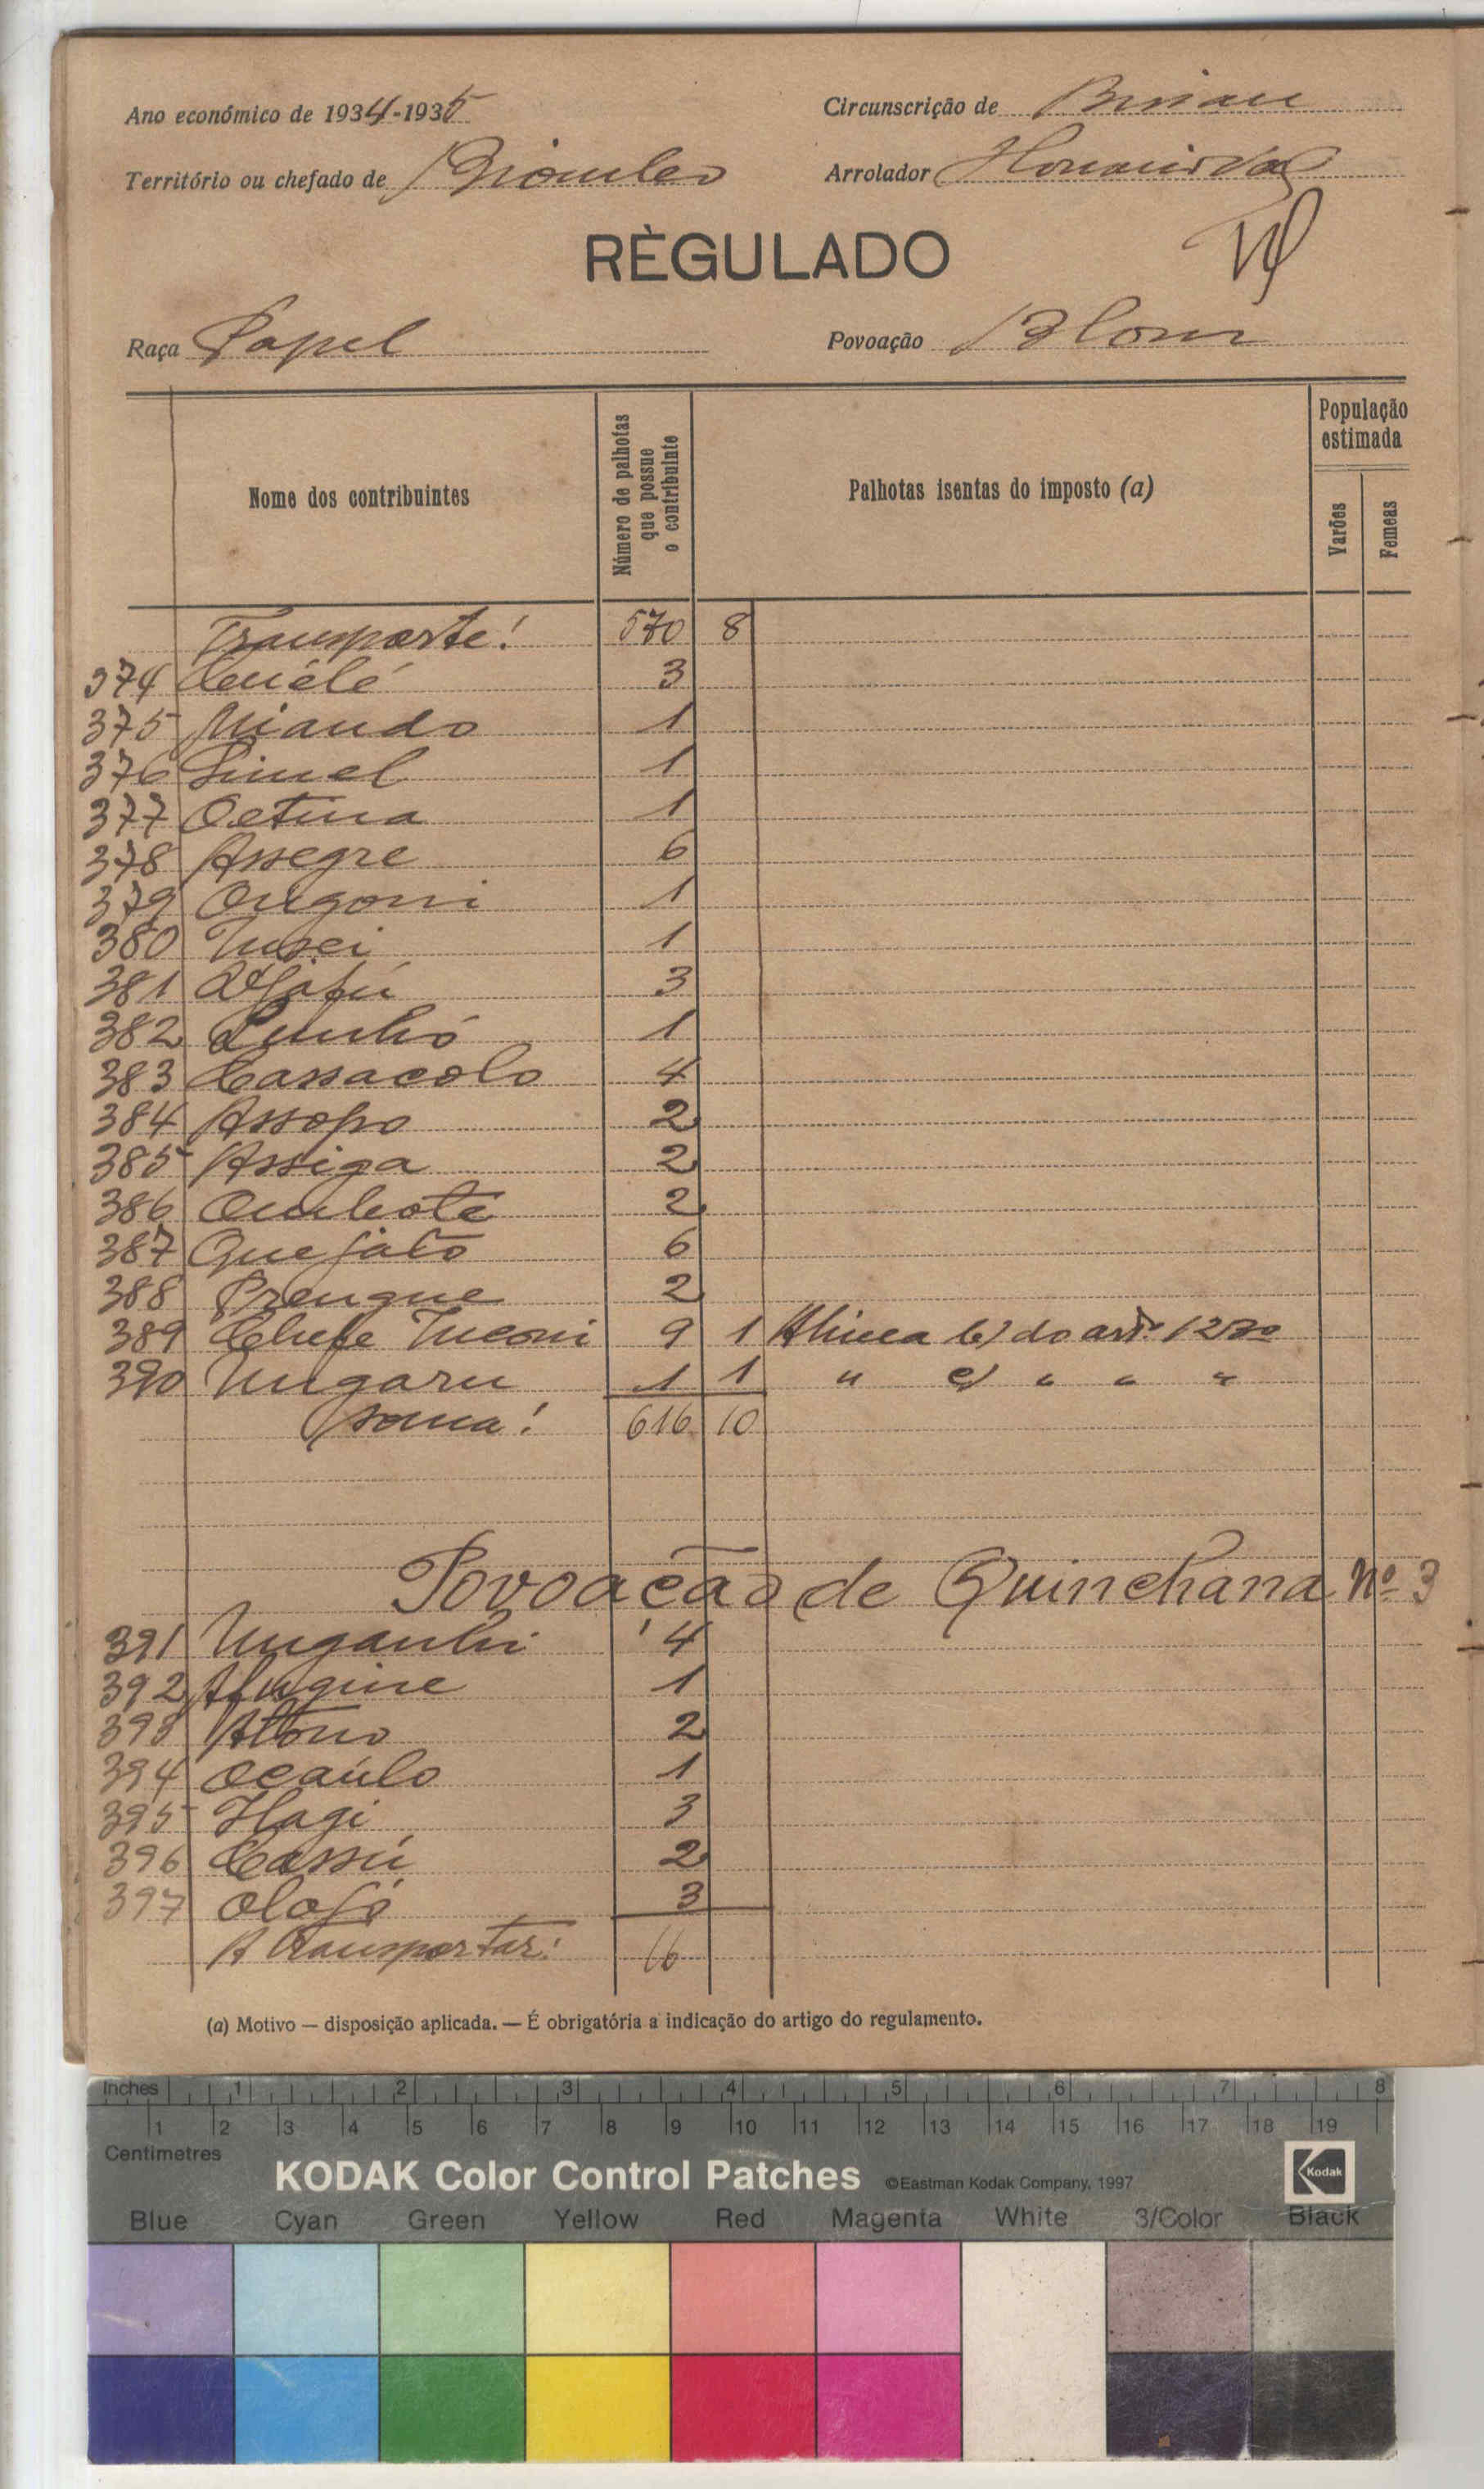 Ano económico de 1934-1935
Circunscrição de Bissau
Território ou chefado de Biombo
Arrolador
RÈGULADO
Raça Papel
Povoação Blom
Nome dos contribuintes
Número de palhotas que possue o contribuinte
Palhotas isentas do imposto (a)
População estimada
Varões
Femeas
Transporte! 570 8
374 3
375 Niando 1
376 1
377 Octina 1
378 Assegre 6
379 Ongomi 1
380 1
381 3
382 1
383 Cassacolo 4
384 Assopo 2
385 Assiga 2
386 Ombote 2
387 Quejato 6
388 Prengue 2
389 Chefe 9 1 Alinea b) do artº 12º
390 Ungaru 1 1 " c) " " "
Soma! 616 10
Povoação de Quinchana Nº 3
391 4
392 1
393 2
394 Ocaúlo 1
395 Hagi 3
396 Cassú 2
397 Olofó 3
A transportar: 16
(a) Motivo — disposição aplicada. — É obrigatória a indicação do artigo do regulamento.
Inches 1 2 3 4 5 6 7 8
1 2 3 4 5 6 7 8 9 10 11 12 13 14 15 16 17 18 19
Centimetres
KODAK Color Control Patches ©Eastman Kodak Company, 1997 Kodak
Blue Cyan Green Yellow Red Magenta White 3/Color Black